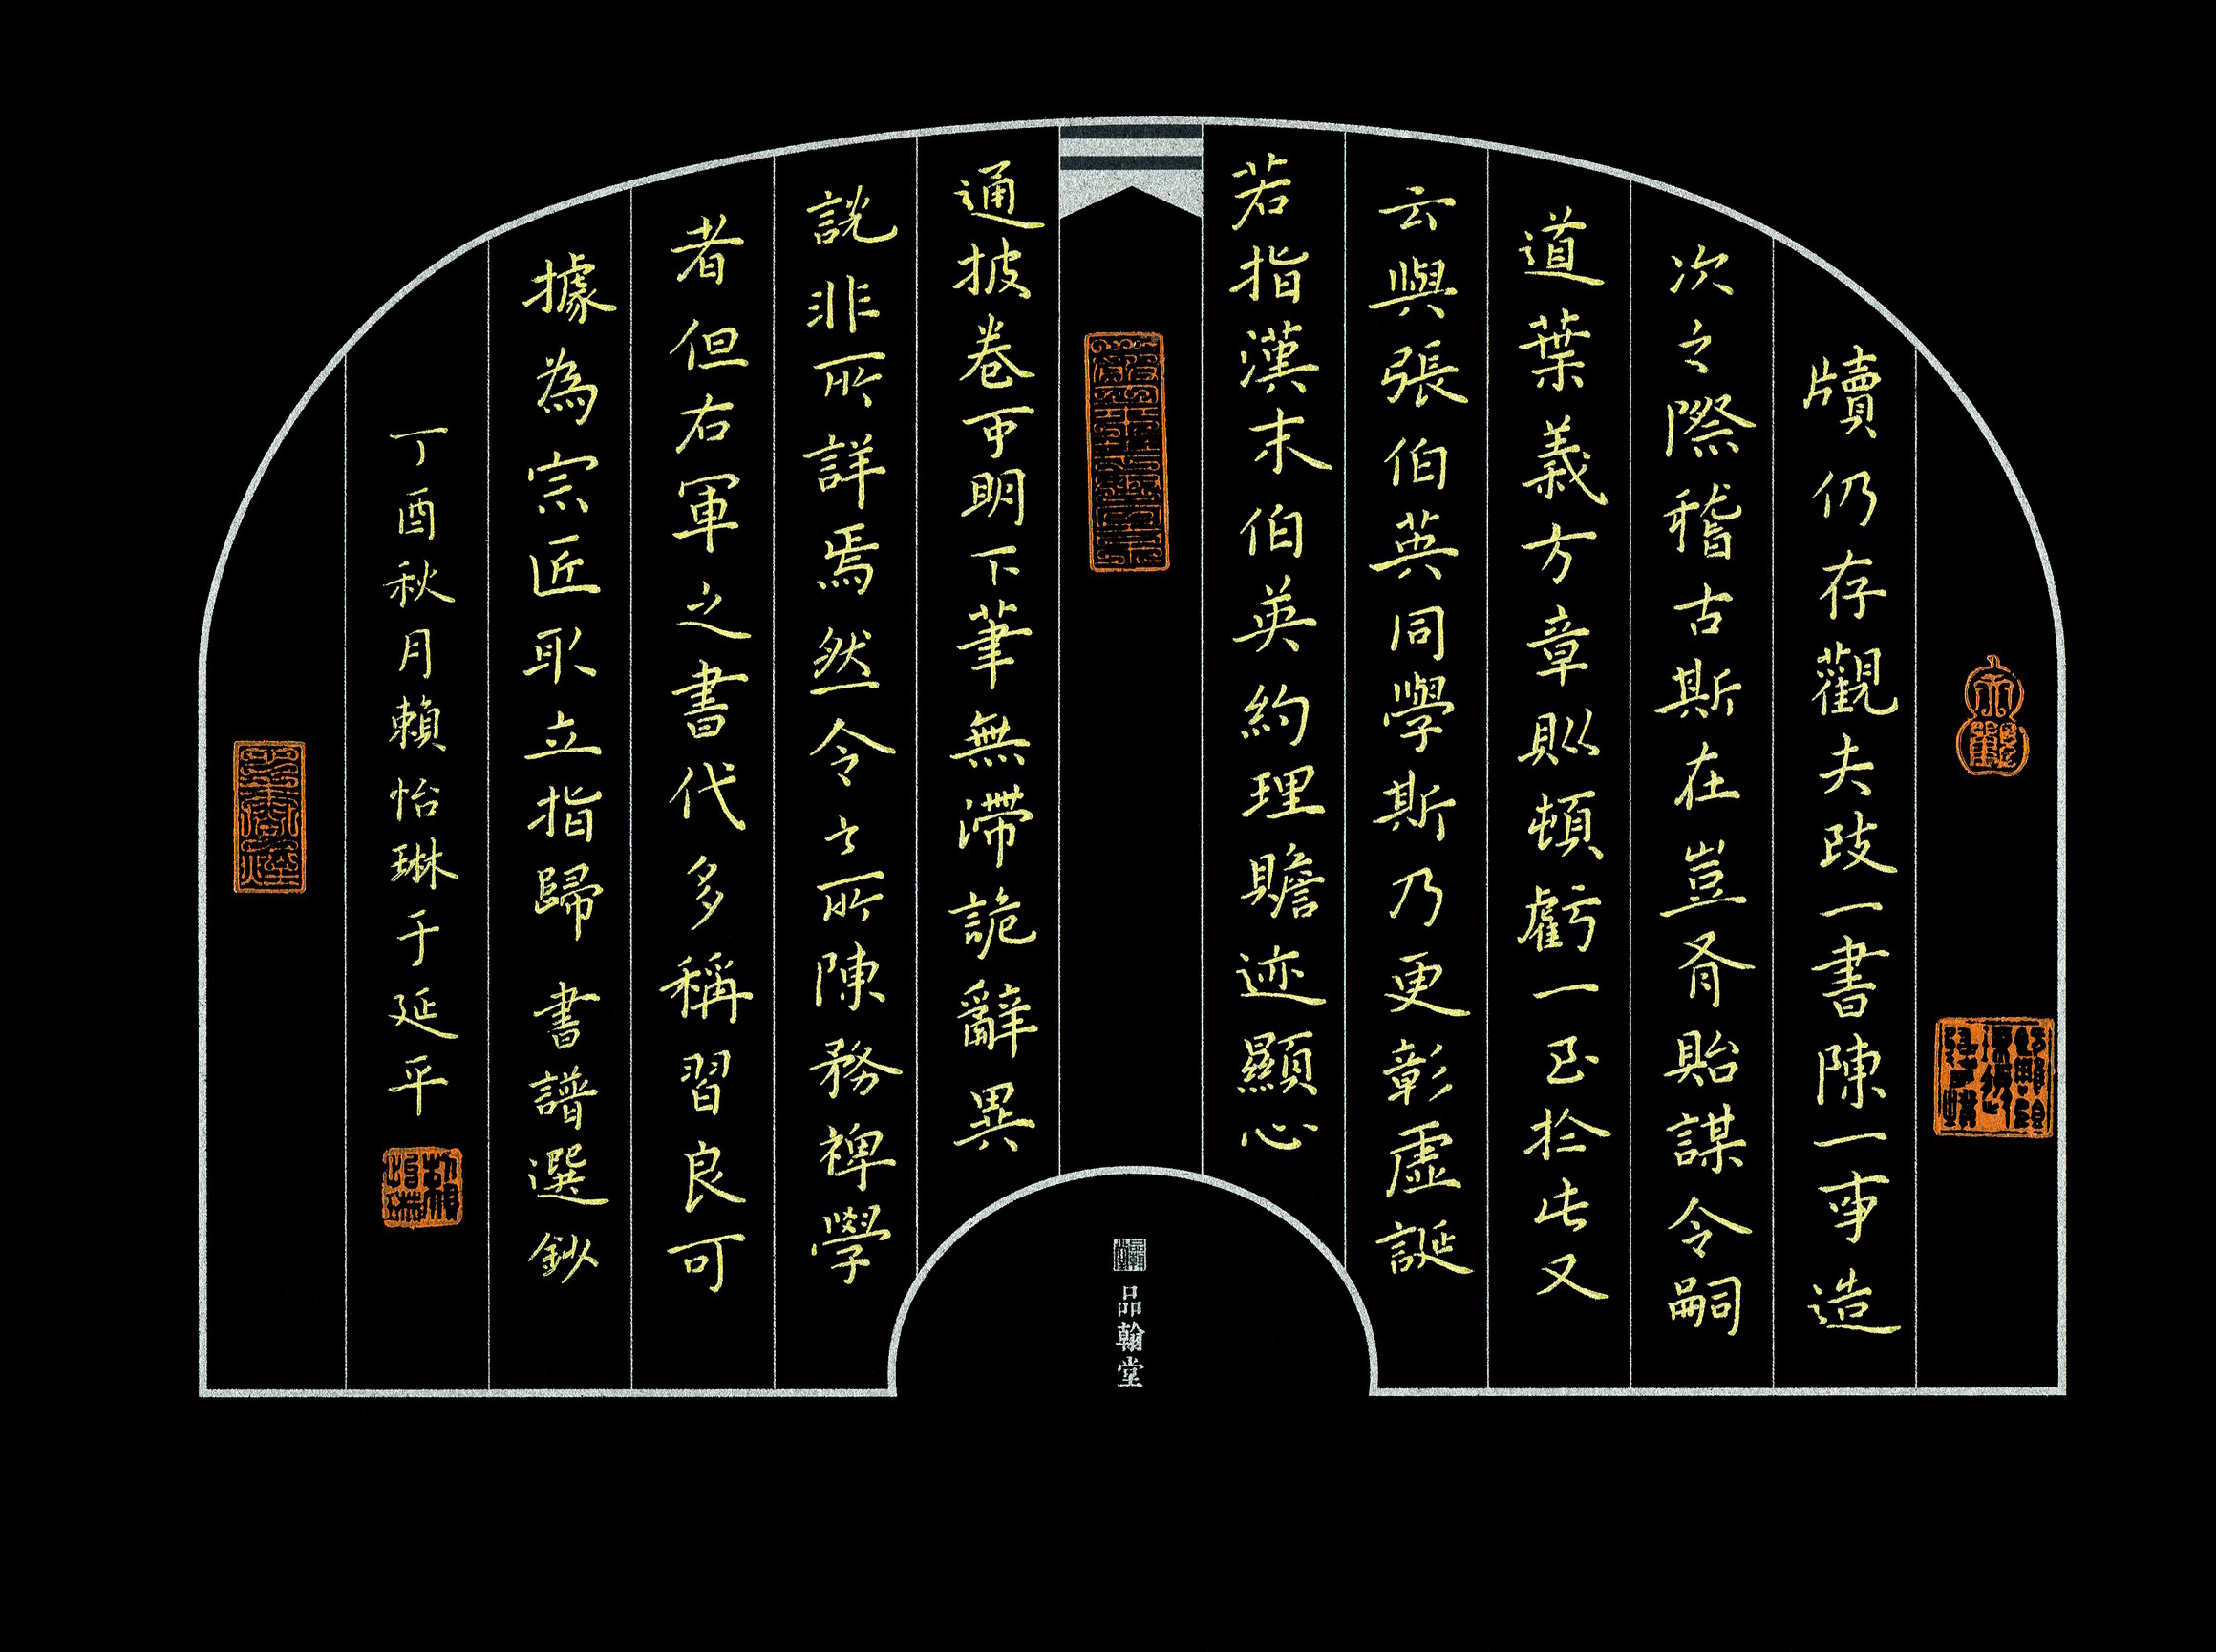 牘仍存觀夫致一書陳一事造
次之際稽古斯在豈有貽謀令嗣
道葉義方章則頓虧一至於此又
云與張伯英同學斯乃更彰虛誕
若指漢末伯英約理贍迹顯心
通披卷可明下筆無滯詭辭異
說非所詳焉然今之所陳務裨學
者但右軍之書代多稱習良可
據為宗匠取立指歸 書譜選鈔
丁酉秋月賴怡琳于延平
品翰堂